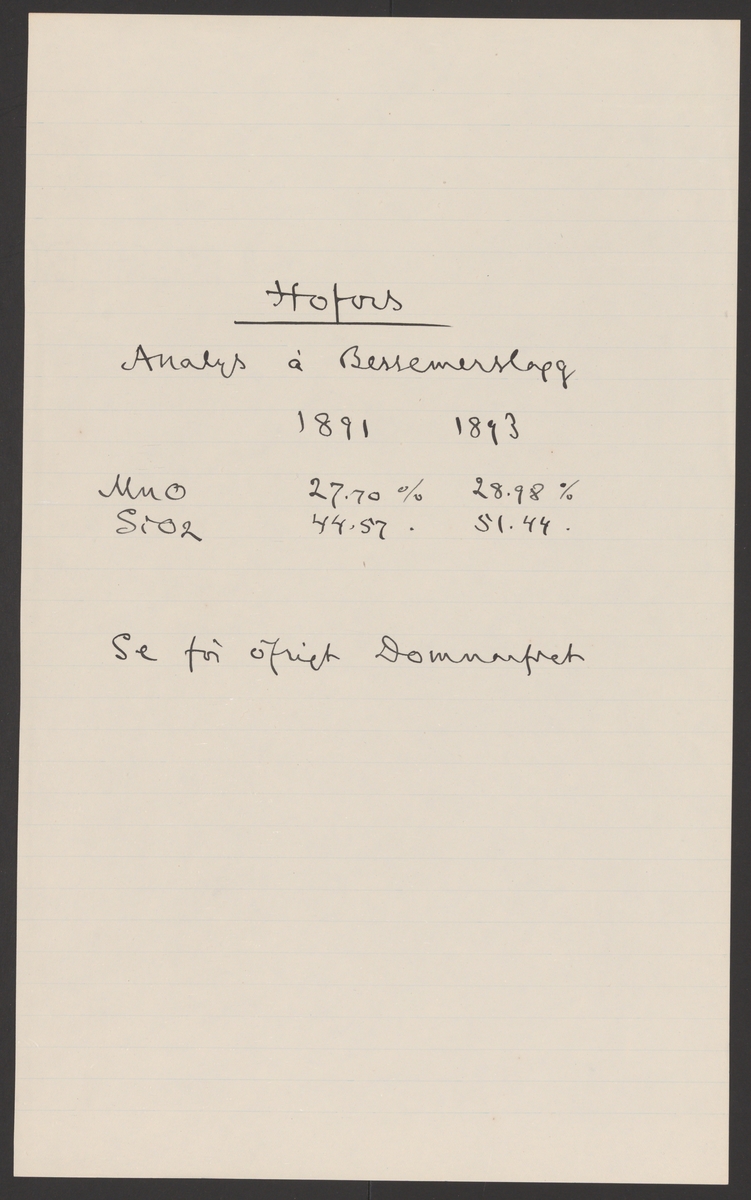 Hofors
Analys å Bessemerslagg
1891 1893
MnO 27.70 % 28.98 %
SiO2 44.57 . 51.44 .
Se för öfrigt Domnarfvet